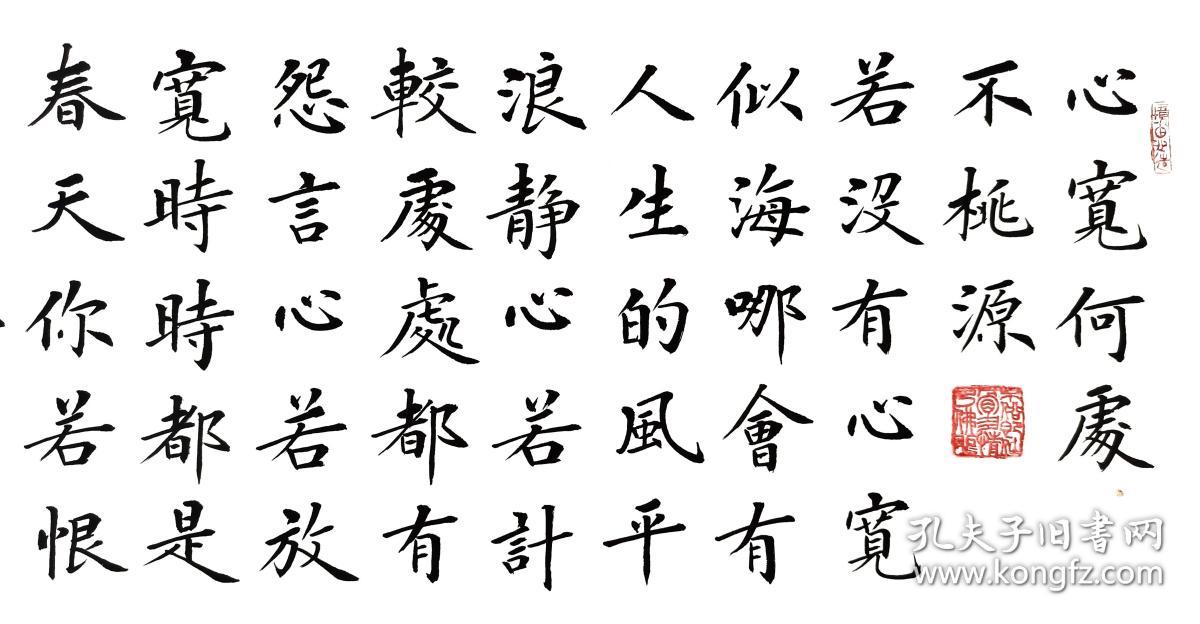 心寬何處
不桃源
若没有心寬
似海哪會有
人生的風平
浪静心若計
較處處都有
怨言心若放
寬時時都是
春天你若恨
孔夫子旧书网
www.kongfz.com